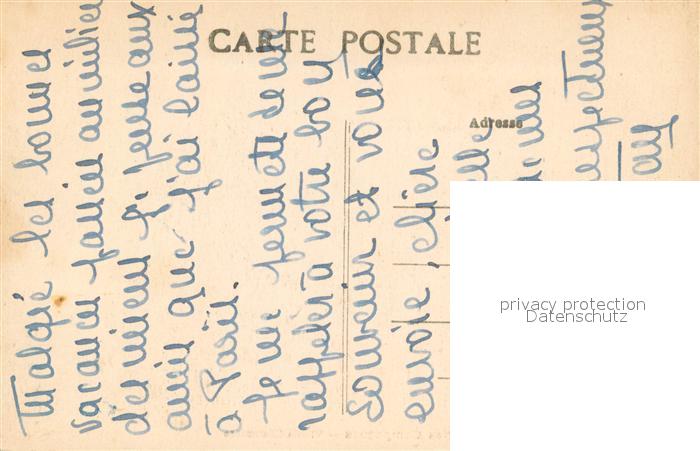 CARTE POSTALE
Adresse
Malgré les bonnes
vacances passées au milieu
des miens je pense aux
amis que j'ai laissés
à Paris.
Je me permets de me
rappeler à votre bon
souvenir et vous
envoie, chère
mes
respectueux
privacy protection
Datenschutz